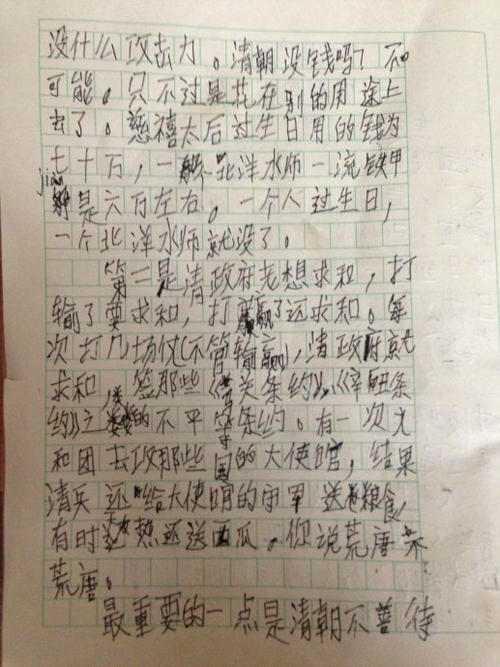 没什么攻击力。清朝没钱吗？不
可能。只不过是花在别的用途上
去了。慈禧太后过生日用的钱为
七十万，一般北洋水师一流铁甲
jiàn
是六万左右。一个人过生日，
一个北洋水师就没了。
第二是清政府老想求和，打
输了要求和，打赢了还求和。每
次打几场仗(不管输赢)，清政府就
求和，签那些《关条约》、《辛丑条
约》之类的不平等条约。有一次义
和团去攻那些国的大使馆，结果
清兵还给大使馆的守军送粮食，
有时太热还送西瓜。你说荒唐不
荒唐。
最重要的一点是清朝不善待